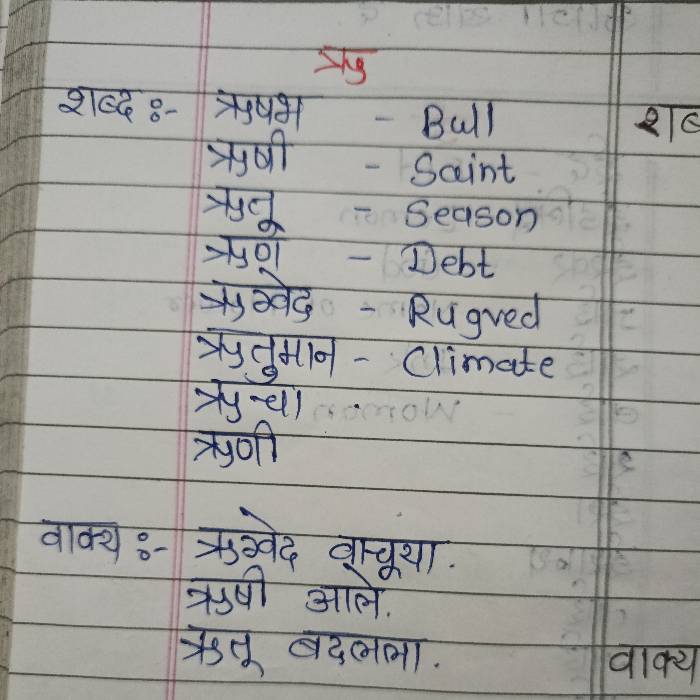 ऋ
शब्द :- ऋषभ - Bull
ऋषी - Saint
ऋतू - Season
ऋण - Debt
ऋग्वेद - Rugved
ऋतुमान - Climate
ऋचा
ऋणी
वाक्य :- ऋग्वेद वाचूया.
ऋषी आले.
ऋतू बदलला.
शब
वाक्य